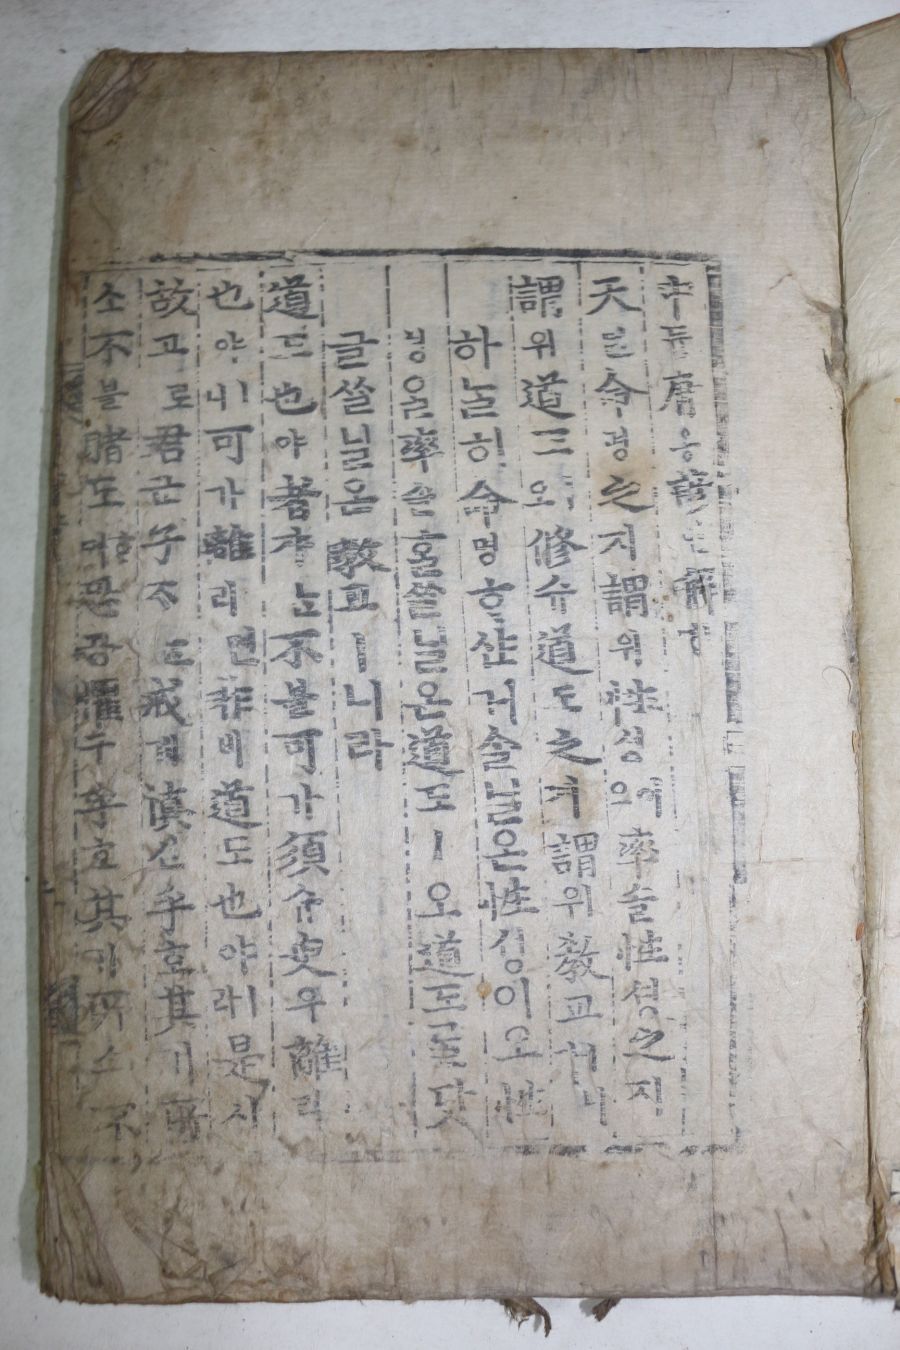 中듕庸용諺언解ᄒᆡ
天텬命명之지謂위性셩이오率솔性셩之지
謂위道도ㅣ오修슈道도之지謂위敎교ㅣ니라
하ᄂᆞᆯ히命명ᄒᆞ샨거슬닐온性셩이오性
셩을率솔홈을닐온道도ㅣ오道도ᄅᆞᆯ닷
글쓸닐온敎교ㅣ니라
道도也야者쟈ᄂᆞᆫ不블可가須슈臾유離리
也야ㅣ니可가離리면非비道도也야ㅣ라是시
故고로君군子ᄌᆞᄂᆞᆫ戒계愼신乎호其기所
소不블睹도ᄒᆞ며恐공懼구乎호其기所소不